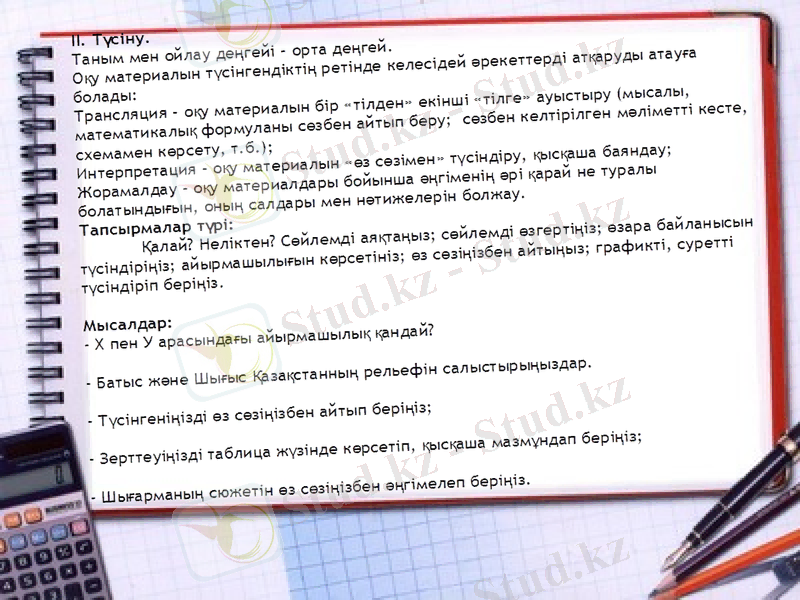 II. Түсіну.
Таным мен ойлау деңгейі - орта деңгей.
Оқу материалын түсінгендіктің ретінде келесідей әрекеттерді атқаруды атауға
болады:
Трансляция - оқу материалын бір «тілден» екінші «тілге» ауыстыру (мысалы,
математикалық формуланы сөзбен айтып беру; сөзбен келтірілген мәліметті кесте,
схемамен көрсету, т.б.);
Интерпретация - оқу материалын «өз сөзімен» түсіндіру, қысқаша баяндау;
Жорамалдау - оқу материалдары бойынша әңгіменің әрі қарай не туралы
болатындығын, оның салдары мен нәтижелерін болжау.
Тапсырмалар түрі:
Қалай? Неліктен? Сөйлемді аяқтаңыз; сөйлемді өзгертіңіз; өзара байланысын
түсіндіріңіз; айырмашылығын көрсетініз; өз сөзіңізбен айтыңыз; графикті, суретті
түсіндіріп беріңіз.
Мысалдар:
- Х пен У арасындағы айырмашылық қандай?
- Батыс және Шығыс Қазақстанның рельефін салыстырыңыздар.
- Түсінгеніңізді өз сөзіңізбен айтып беріңіз;
- Зерттеуіңізді таблица жүзінде көрсетіп, қысқаша мазмұндап беріңіз;
- Шығарманың сюжетін өз сөзіңізбен әңгімелеп беріңіз.
Stud.kz - Stud.kz
Stud.kz - Stud.kz
Stud.kz - Stud.kz
Stud.kz